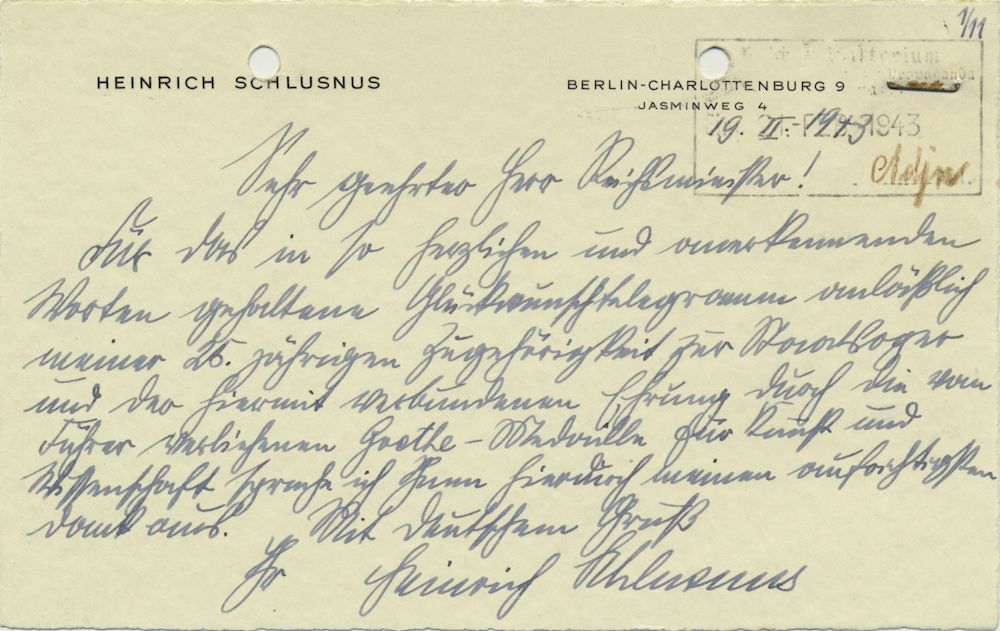 1/11
HEINRICH SCHLUSNUS
BERLIN-CHARLOTTENBURG 9
JASMINWEG 4
19. II. 1943
21. FEB. 1943
Sehr geehrter Herr Reichsminister!
Für das in so herzlichen und anerkennenden
Worten gehaltene Glückwunschtelegramm anläßlich
meiner 25. jährigen Zugehörigkeit zur Staatsoper
und der hiermit verbundenen Ehrung durch die vom
Führer verliehenen Goethe-Medaille für Kunst und
Wissenschaft spreche ich Ihnen hierdurch meinen aufrichtigsten
Dank aus. Mit Deutschem Gruß
Ihr Heinrich Schlusnus